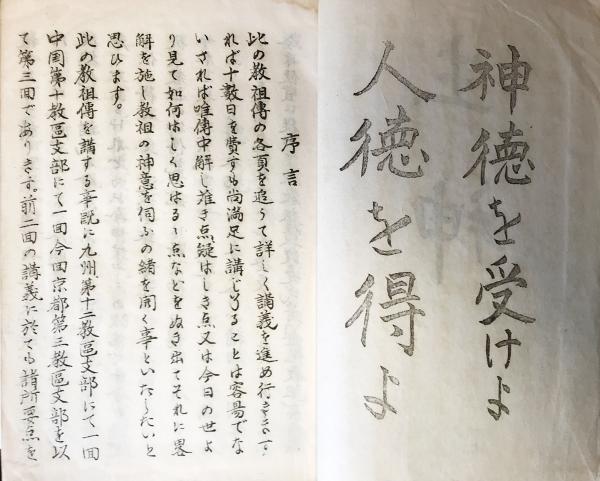 神徳を受けよ
人徳を得よ
序言
此の教祖傳の各頁を追うて詳しく講義を進め行きます
れば十数日を費すも尚満足に講じ了ることは容昜でな
いされば唯傳中解し難き点疑はしき点又は今日の世よ
り見て如何はしく思はるゝ点などをぬき出てそれに畧
解を施し教祖の神意を伺ふの緒を開く事といたしたいと
思ひます。
此の教祖傳を講する事既に九州第十二教區支部にて一回
中国第十教區支部にて一回今回京都第三教區支部を以
て第三回であります。前二回の講義に於ても諸所要点を